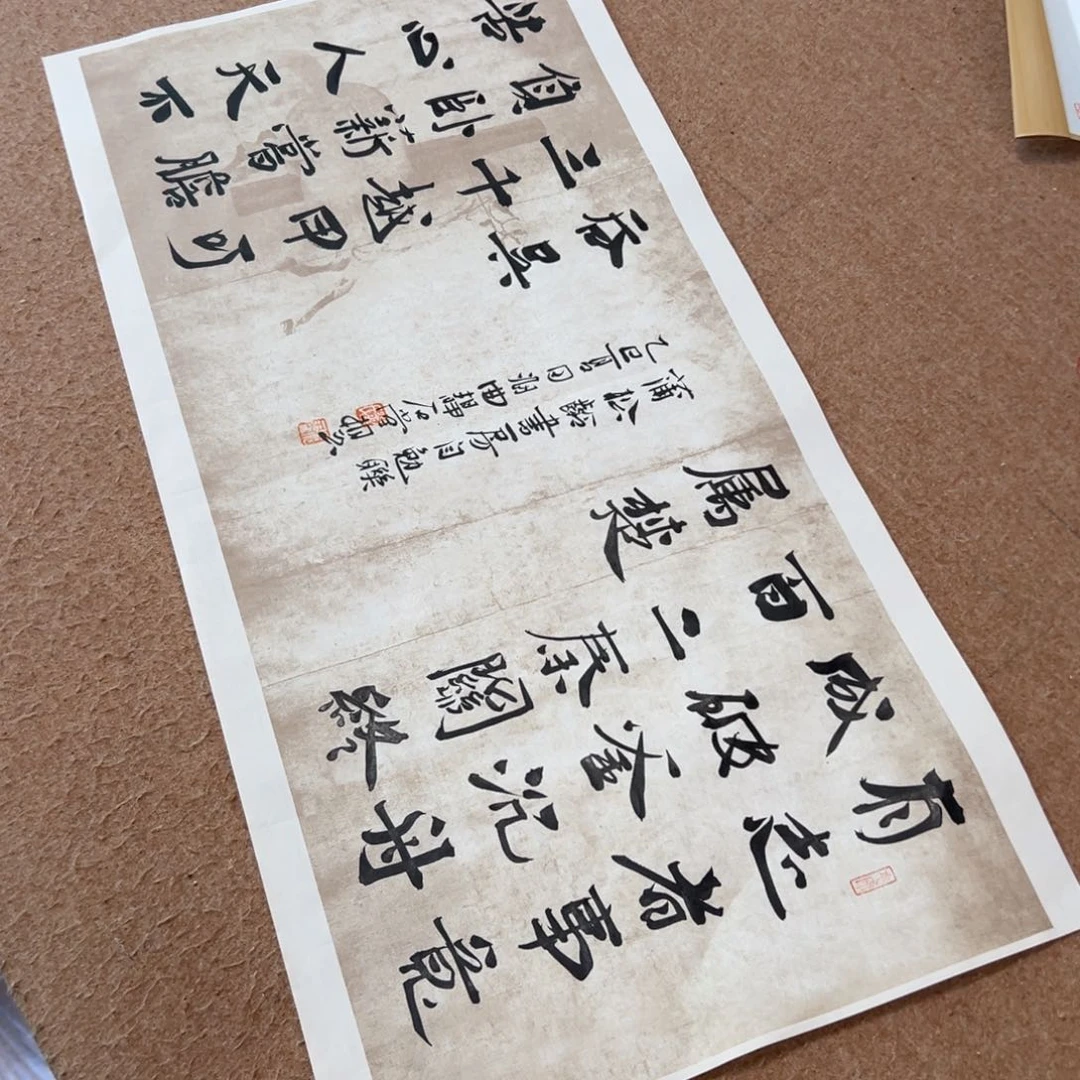 有志者事竟
成破釜沉舟
百二秦關終
屬楚
苦心人天不
負臥薪嘗膽
三千越甲可
吞吳
蒲松齡書房自勉聯
乙巳